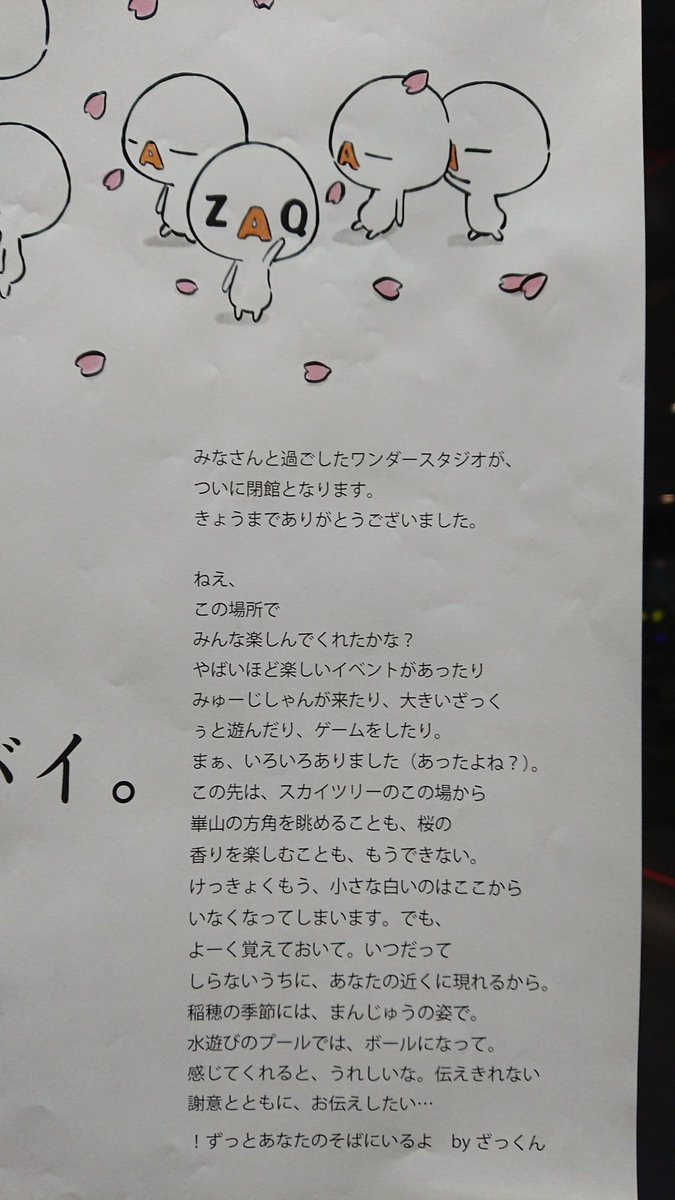 A
A
A
Z A Q
みなさんと過ごしたワンダースタジオが、
ついに閉館となります。
きょうまでありがとうございました。
ねえ、
この場所で
みんな楽しんでくれたかな？
やばいほど楽しいイベントがあったり
みゅーじしゃんが来たり、大きいざっく
ぅと遊んだり、ゲームをしたり。
まぁ、いろいろありました（あったよね？）。
この先は、スカイツリーのこの場から
崋山の方角を眺めることも、桜の
香りを楽しむことも、もうできない。
けっきょくもう、小さな白いのはここから
いなくなってしまいます。でも、
よーく覚えておいて。いつだって
しらないうちに、あなたの近くに現れるから。
稲穂の季節には、まんじゅうの姿で。
水遊びのプールでは、ボールになって。
感じてくれると、うれしいな。伝えきれない
謝意とともに、お伝えしたい…
！ずっとあなたのそばにいるよ　by ざっくん
バイ。